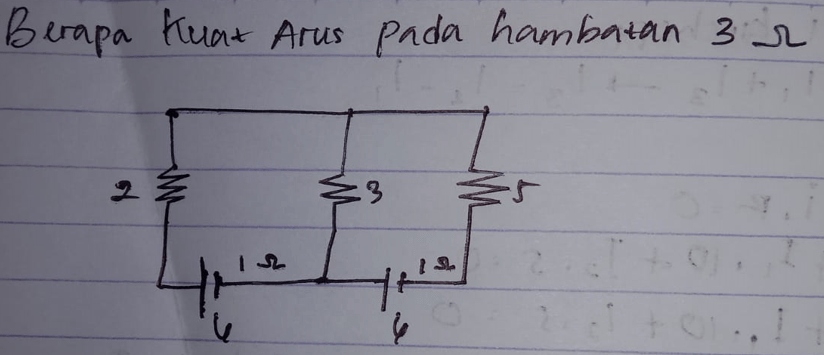 Berapa Kuat Arus pada hambatan 3 Ω
2
3
5
1 Ω
1 Ω
6
6